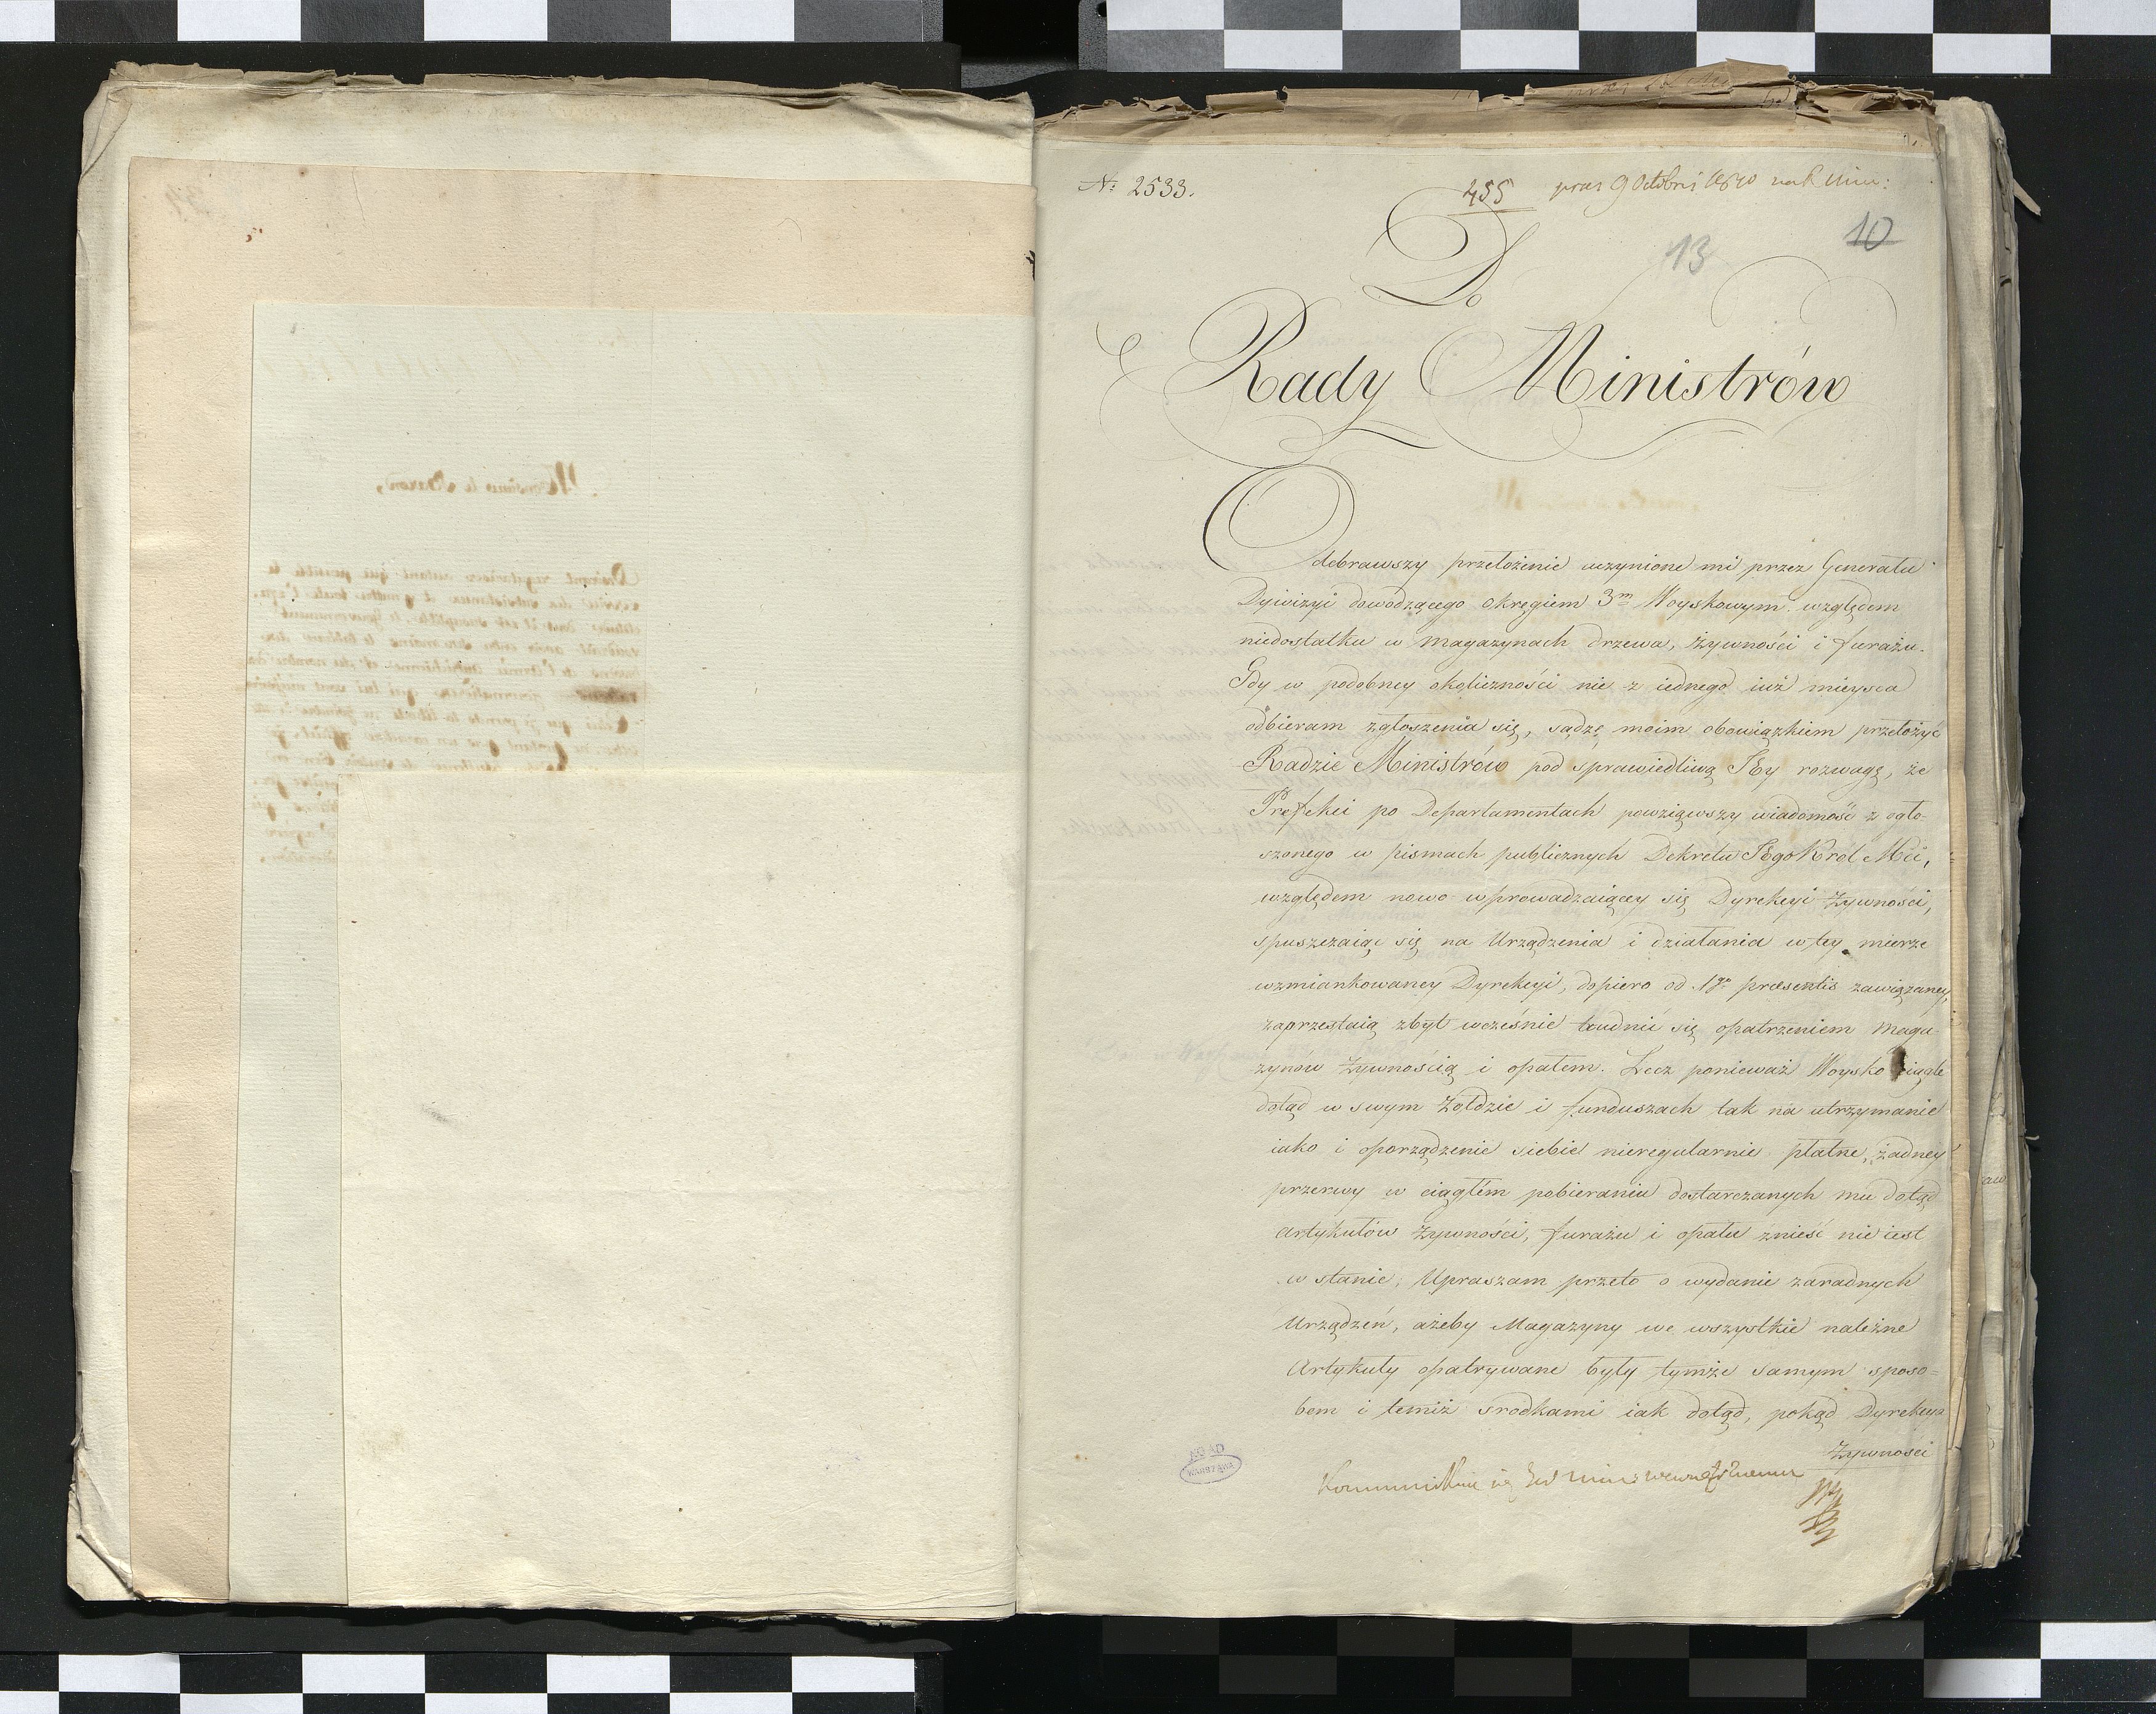 Nro 2533.
455 praes 9 Octobris 1810
10
13
Do
Rady Ministrów
Odebrawszy przełożenie uczynione mi przez Generała
Dywizyi dowodzącego okręgiem 3m Woyskowym, względem
niedostatku w magazynach drzewa, żywności i furażu.
Gdy w podobney okoliczności nie z iednego iuż mieysca
odbieram zgłoszenia się, sądzę moim obowiązkiem przełożyć
Radzie Ministrów pod sprawiedliwą Jey rozwagę, że
Prefekci po Departamentach powziąwszy wiadomość z ogło-
szonego w pismach publicznych Dekretu JEgo Król Mci,
względem nowo wprowadzaiącey się Dyrekcyi Żywności,
spuszczaiąc się na Urządzenia i działania w tey mierze
wzmiankowaney Dyrekcyi, dopiero od 1go praesentis zawiązaney,
zaprzestaią zbyt wcześnie trudnić się opatrzeniem Maga-
zynów żywnością i opałem. Lecz ponieważ Woysko ciągle
dotąd w swym Żołdzie i funduszach tak na utrzymanie
iako i oporządzenie siebie nieregularnie płatne, żadney
przerwy w ciągłém pobieraniu dostarczanych mu dotąd
Artykułów Żywności, furażu i opału znieść nie iest
w stanie, Upraszam przeto o wydanie zaradnych
Urządzeń, ażeby Magazyny we wszystkie należne
Artykuły opatrywane były tymże samym sposo-
bem i temiż srodkami iak dotąd, pokąd Dyrekcya
Żywności
AGAD
WARSZAWA